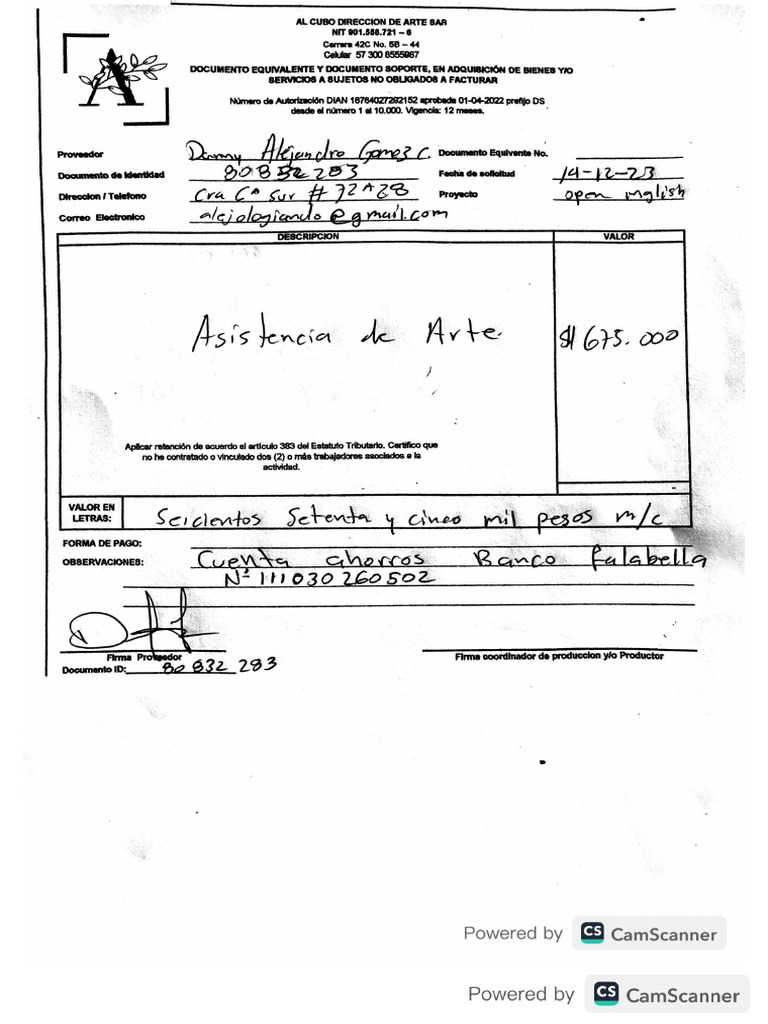 AL CUBO DIRECCION DE ARTE SAR
NIT 901.556.721 – 6
Carrera 42C No. 5B – 44
Celular 57 300 8555987
DOCUMENTO EQUIVALENTE Y DOCUMENTO SOPORTE, EN ADQUISICIÓN DE BIENES Y/O
SERVICIOS A SUJETOS NO OBLIGADOS A FACTURAR
Número de Autorización DIAN 18764027282152 aprobada 01-04-2022 prefijo DS
desde el número 1 al 10.000. Vigencia: 12 meses.
Proveedor Danny Alejandro Gomez C. Documento Equivente No.
Documento de Identidad 80832283 Fecha de solicitud 14-12-23
Direccion / Telefono Cra Cª sur # 72A28 Proyecto open inglish
Correo Electronico alejologiando@gmail.com
DESCRIPCION VALOR
Asistencia de Arte. $ 675.000
Aplicar retención de acuerdo el artículo 383 del Estatuto Tributario. Certifico que
no he contratado o vinculado dos (2) o más trabajadores asociados a la
actividad.
VALOR EN
LETRAS: Seicientos Setenta y cinco mil pesos m/c
FORMA DE PAGO:
OBSERVACIONES: Cuenta ahorros Banco falabella
Nº 111030260502
Firma Proveedor Firma coordinador de produccion y/o Productor
Documento ID: 80832283
Powered by CS CamScanner
Powered by CS CamScanner